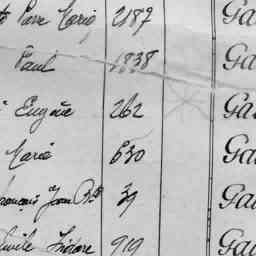 Pierre Marie 2187 Ga
Paul 1838 Ga
Eugène 262 Ga
Marie 630 Ga
François Jean Bte 39 Ga
Isidore 919 Ga